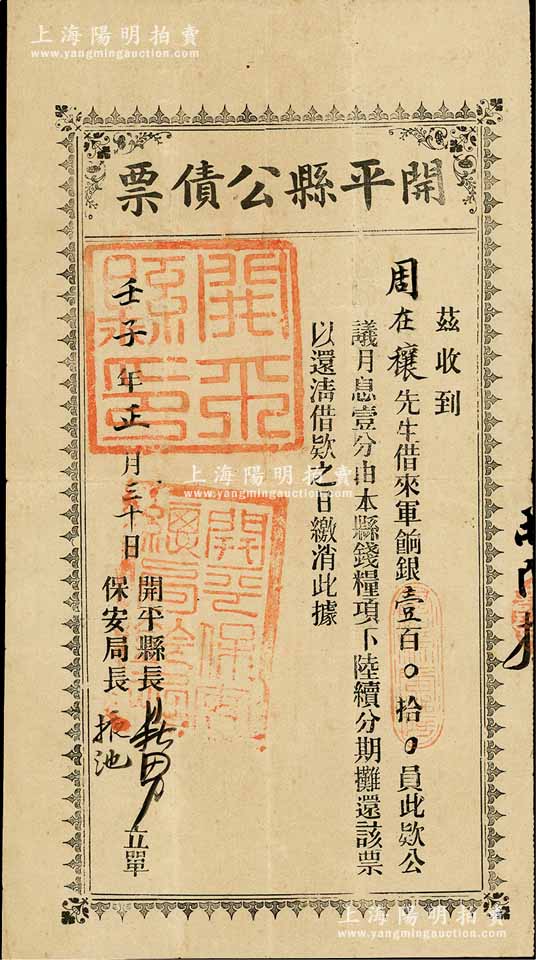 上海陽明拍賣
www.yangmingauction.com
開平縣公債票
茲收到
周在穰先生借來軍餉銀壹百〇拾〇員此欵公
議月息壹分由本縣錢糧項下陸續分期攤還該票
以還清借欵之日繳消此據
壬子年正月三十日
開平縣長
保安局長
振池
立單
開平縣印
上海陽明拍賣
www.yangmingauction.com
上海陽明拍賣
www.yangmingauction.com